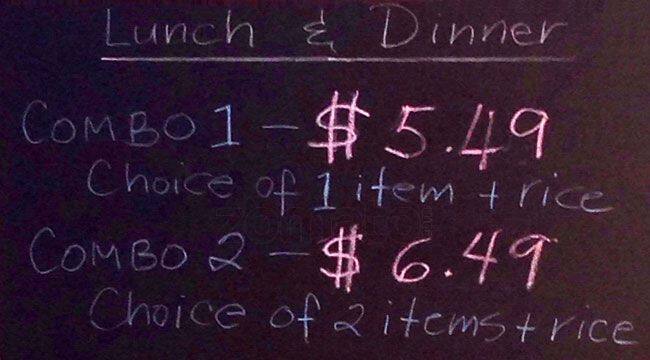 Lunch & Dinner
COMBO 1 - $5.49
Choice of 1 item + rice
COMBO 2 - $6.49
Choice of 2 items + rice